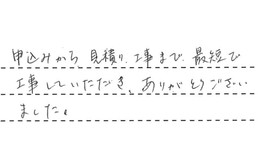 申込みから見積り、工事まで、最短で
工事していただき、ありがとうござい
ました。